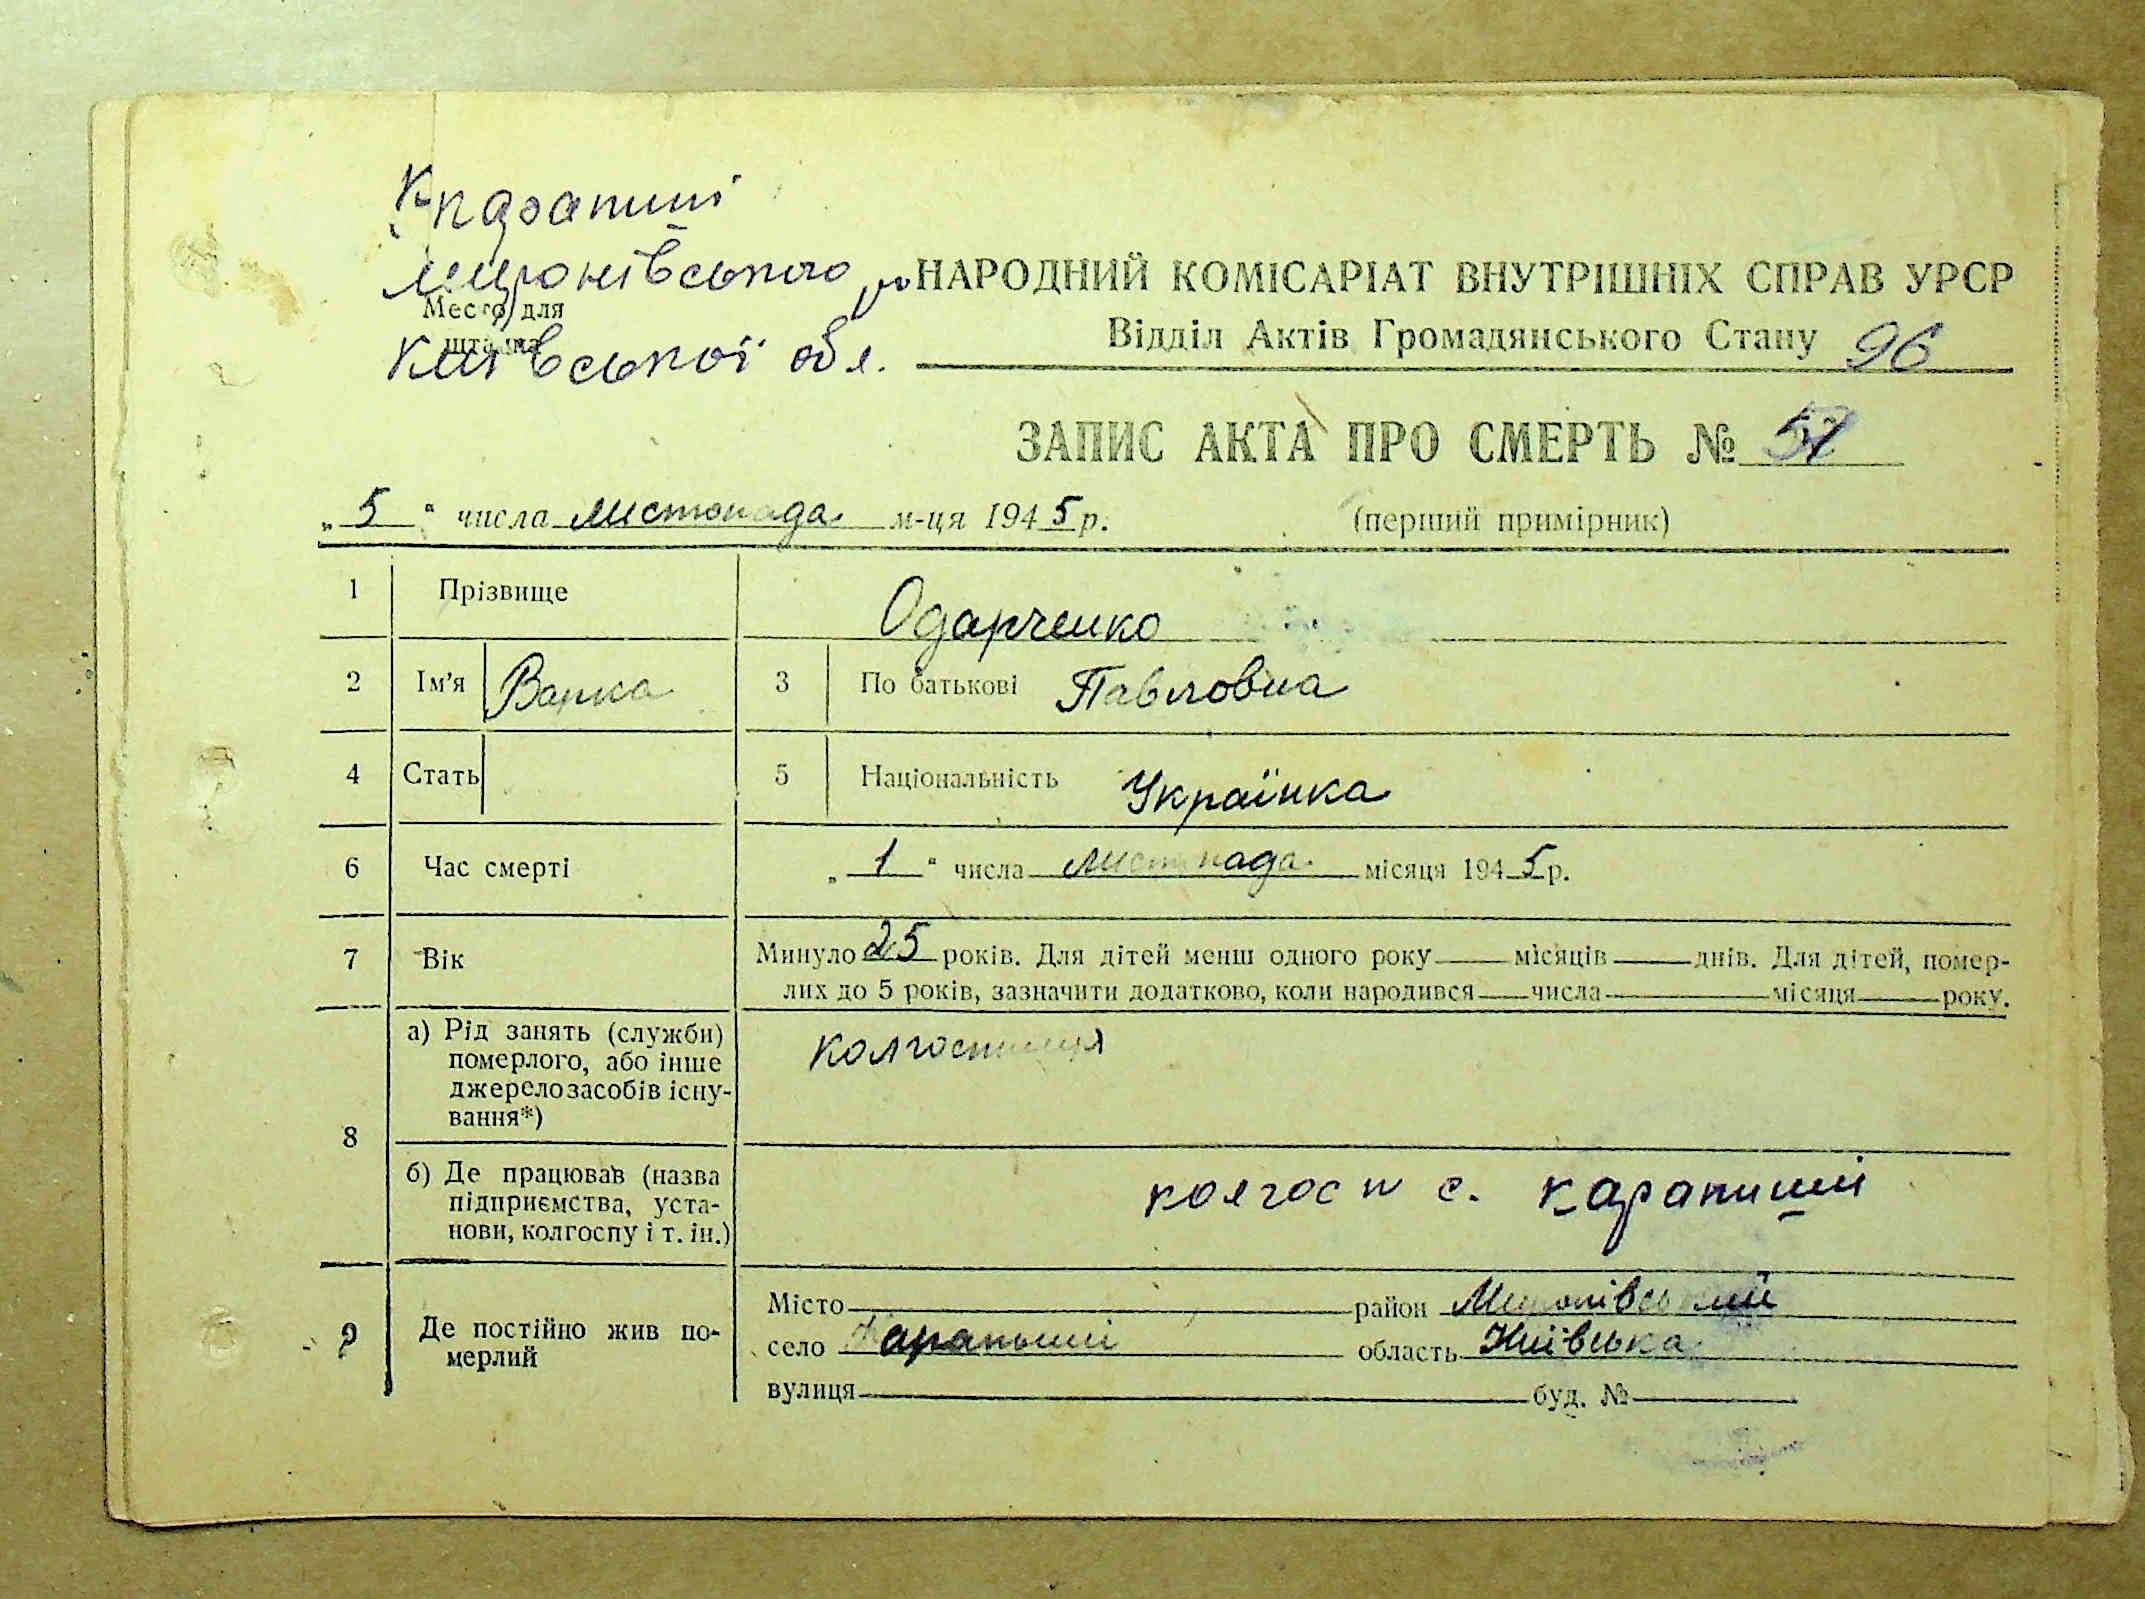 Карапиші
Миронівського р-ну
Место для
штампа
Київської обл.
НАРОДНИЙ КОМІСАРІАТ ВНУТРІШНІХ СПРАВ УРСР
Відділ Актів Громадянського Стану 96
ЗАПИС АКТА ПРО СМЕРТЬ № 57
„ 5 “ числа листопада м-ця 1945 р. (перший примірник)
1 Прізвище Одарченко
2 Ім'я Варка 3 По батькові Павловна
4 Стать 5 Національність Українка
6 Час смерті „ 1 “ числа листопада місяця 1945 р.
7 Вік Минуло 25 років. Для дітей менш одного року місяців днів. Для дітей, помер-
лих до 5 років, зазначити додатково, коли народився числа місяця року.
8 а) Рід занять (служби) колгоспниця
померлого, або інше
джерело засобів існу-
вання*)
б) Де працював (назва колгосп с. Карапиші
підприємства, уста-
нови, колгоспу і т. ін.)
9 Де постійно жив по-
мерлий
Місто район Миронівський
село Карапиші область Київська
вулиця буд. №